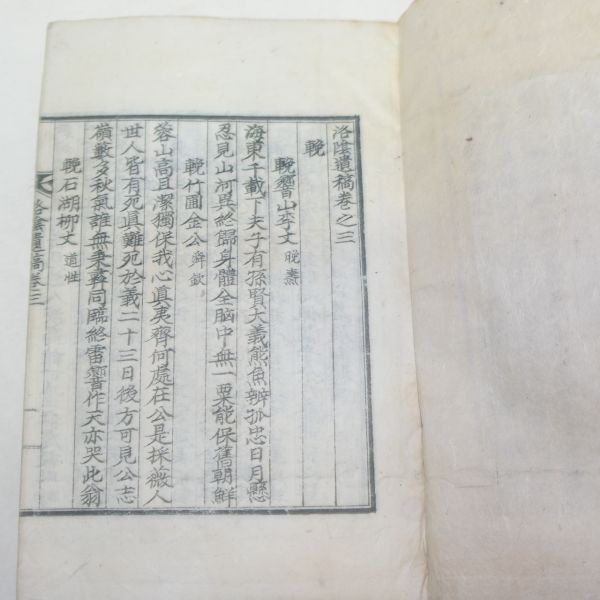 洛陰遺稿卷之三
輓
輓響山李丈 晚燾
海東千載下夫子有孫賢大義熊魚辨孤忠日月懸
忍見山河異終歸身體全腦中無一粟能保舊朝鮮
輓竹圃金公 舜欽
蓉山高且潔獨保我心眞夷齊何處在公是採薇人
世人皆有死眞難死於義二十三日後方可見公志
嶺藪多秋氣誰無秉彛同臨終雷響作天亦哭此翁
輓石湖柳丈 道性
洛陰遺稿卷三
一